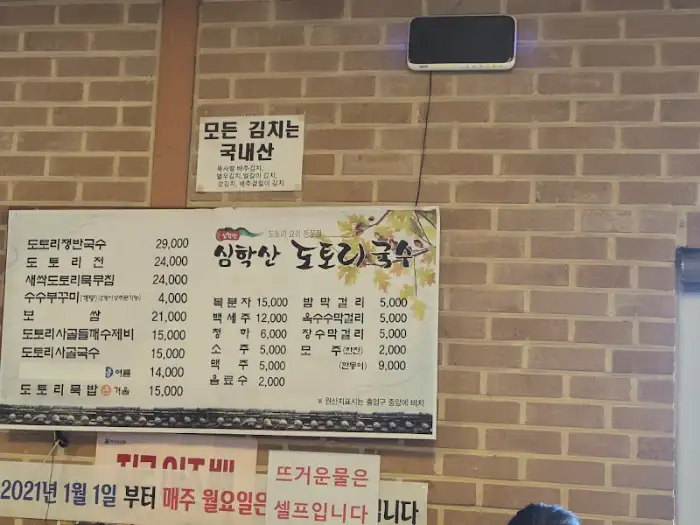 모든 김치는
국내산
열무김치, 얼갈이 김치,
갓김치, 배추겉절이 김치
심학산 도토리국수
도토리쟁반국수 29,000
도토리전 24,000
새싹도토리묵무침 24,000
수수부꾸미 4,000
보쌈 21,000
도토리사골들깨수제비 15,000
도토리사골국수 15,000
여름 14,000
도토리묵밥 겨울 15,000
복분자 15,000
백세주 12,000
청하 6,000
소주 5,000
맥주 5,000
음료수 2,000
밤막걸리 5,000
옥수수막걸리 5,000
장수막걸리 5,000
모주 (한잔) 2,000
(한동이) 9,000
※ 원산지표시는 출입구 중앙에 비치
2021년 1월 1일 부터 매주 월요일은
니다
뜨거운물은
셀프입니다